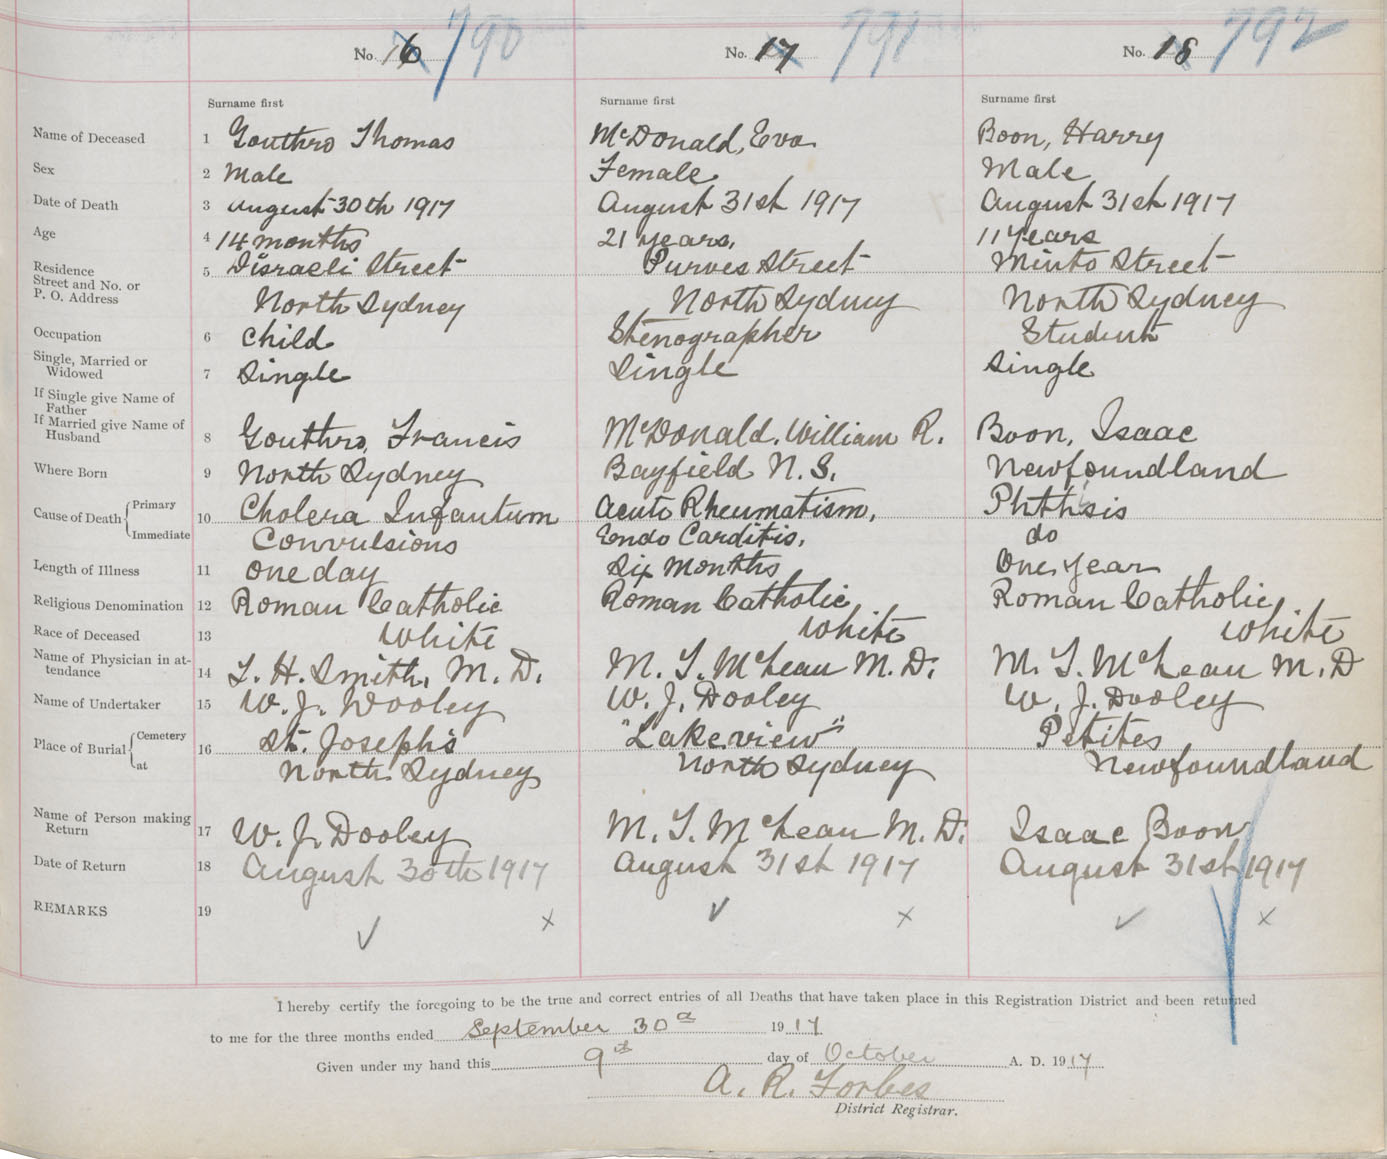 No. 16 790 No. 17 791 No. 18 792
Surname first Surname first Surname first
Name of Deceased 1 Gouthro Thomas McDonald, Eva Boon, Harry
Sex 2 Male Female Male
Date of Death 3 August 30th 1917 August 31st 1917 August 31st 1917
Age 4 14 months 21 years, 11 Years
Residence
Street and No. or
P. O. Address
5 Disraeli Street Purves Street Minto Street
North Sydney North Sydney North Sydney
Occupation 6 Child Stenographer Student
Single, Married or
Widowed
7 Single Single Single
If Single give Name of
Father
If Married give Name of
Husband
8 Gouthro, Francis McDonald, William R. Boon, Isaac
Where Born 9 North Sydney Bayfield N. S. Newfoundland
Cause of Death { Primary 10 Cholera Infantum Acute Rheumatism, Phthisis
Immediate Convulsions Endo Carditis, do
Length of Illness 11 one day Six Months One year
Religious Denomination 12 Roman Catholic Roman Catholic Roman Catholic
Race of Deceased 13 White White White
Name of Physician in at-
tendance
14 L. H. Smith, M. D. M. T. McLean M. D. M. T. McLean M. D
Name of Undertaker 15 W. J. Dooley W. J. Dooley W. J. Dooley
Place of Burial { Cemetery 16 St. Joseph's "Lakeview" Petites
at North Sydney North Sydney Newfoundland
Name of Person making
Return
17 W. J. Dooley M. T. McLean M. D. Isaac Boon
Date of Return 18 August 30th 1917 August 31st 1917 August 31st 1917
REMARKS 19
✓ x ✓ x ✓ x
I hereby certify the foregoing to be the true and correct entries of all Deaths that have taken place in this Registration District and been returned
to me for the three months ended September 30th 1917
Given under my hand this 9th day of October A. D. 1917
A. R. Forbes
District Registrar.